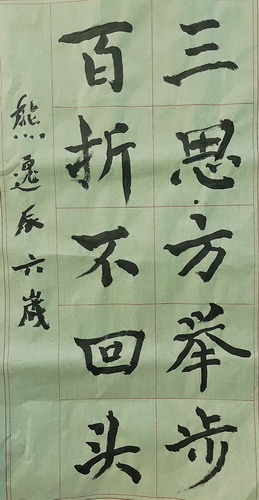 三思方举步
百折不回头
熊逸辰六歲